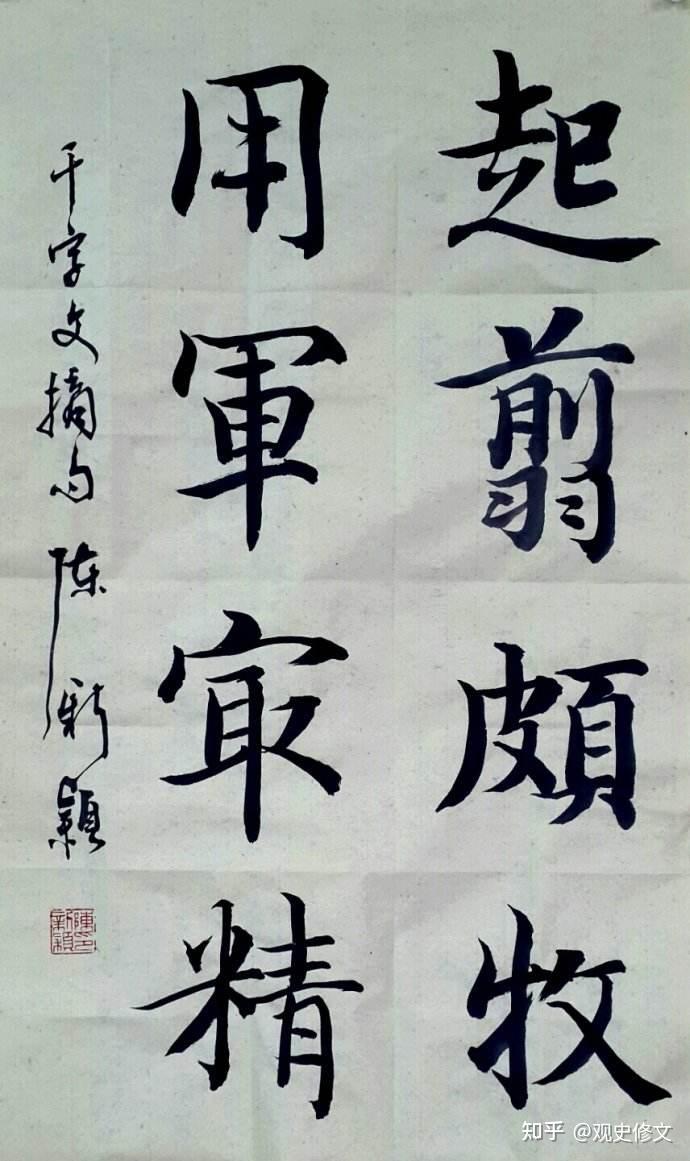 起翦頗牧
用軍冣精
千字文摘句 陈新颖
陳新穎印
知乎 @观史修文